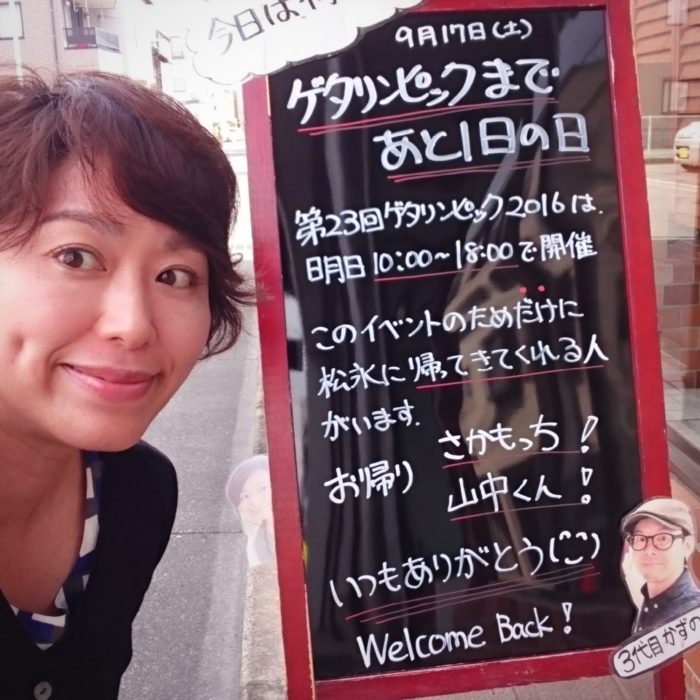 今日は、何
9月17日(土)
ゲタリンピックまで
あと1日の日
第23回ゲタリンピック2016は、
明日10:00~18:00で開催
このイベントのためだけに
松永に帰ってきてくれる人
がいます.
お帰り さかもっち!
山中くん!
いつもありがとう(^-^)
Welcome Back!
3代目かずの